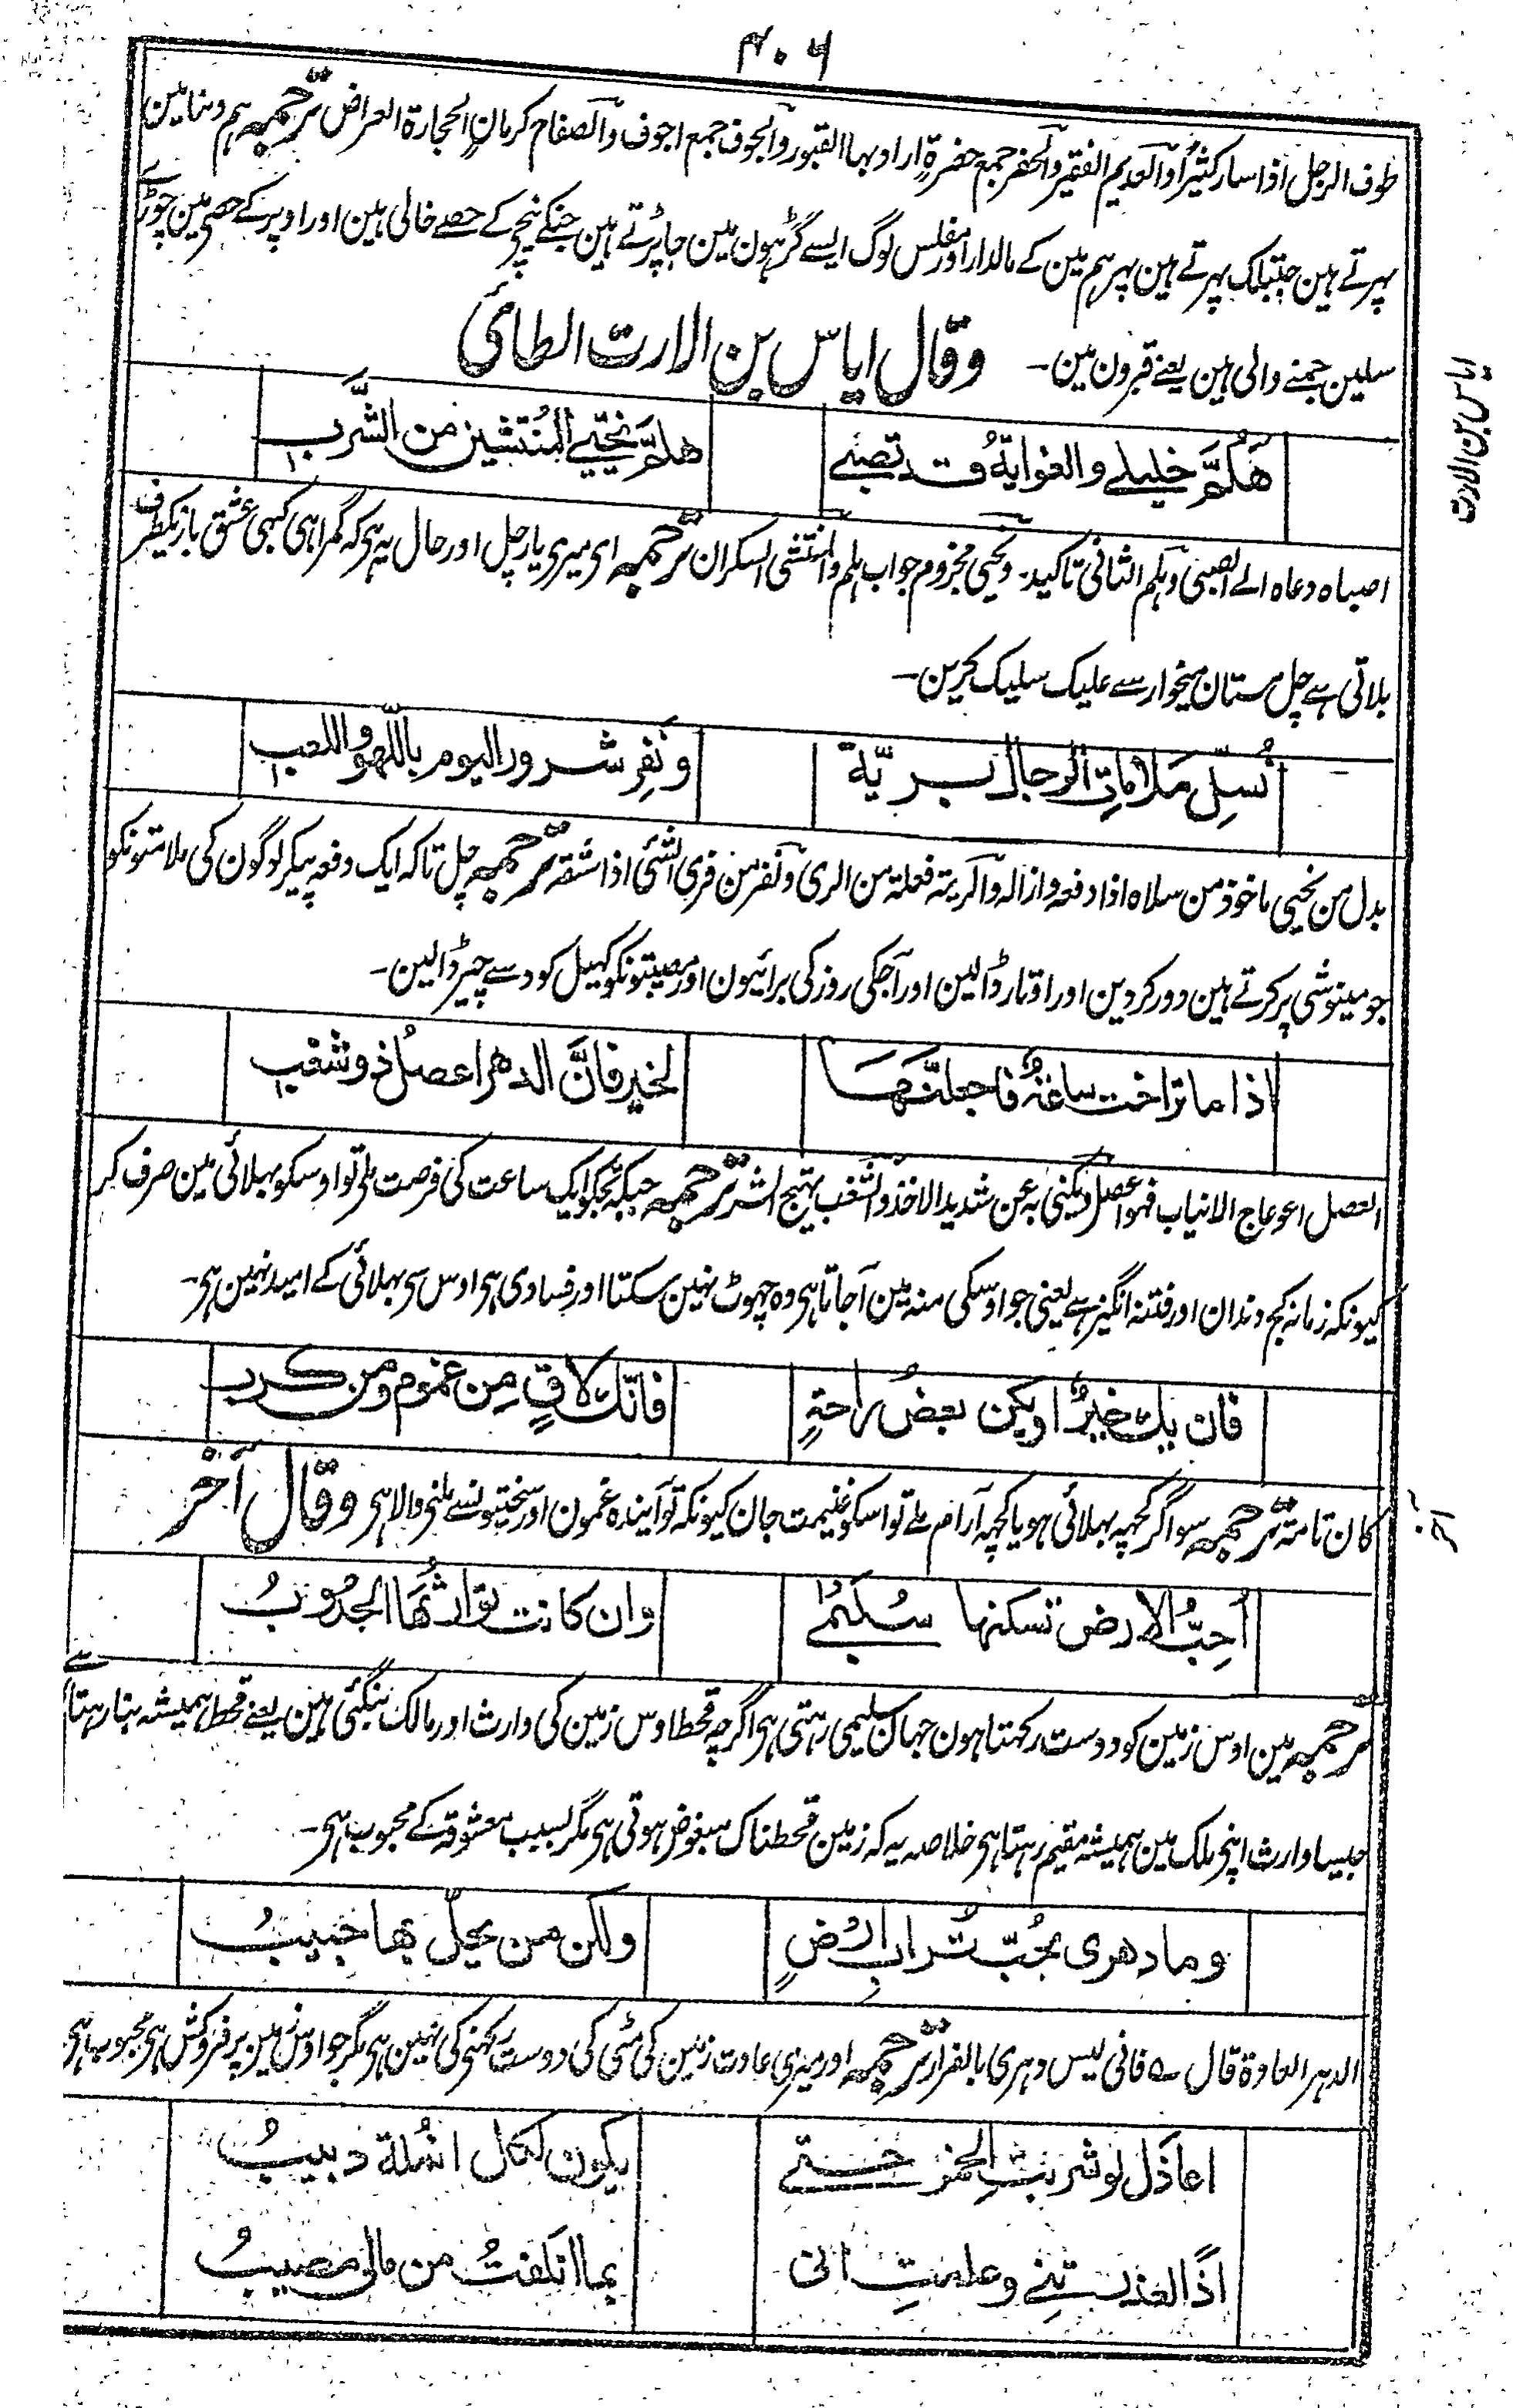 ۴۰۶
طوف الرجل اذا سار کثیرًا والعدیم الفقیر والحفر جمع حفرة اراد بہا القبور والجوف جمع اجوف والصفاح کرمان الحجارة العراض ترجمہ ہم دنیا مین
پہرتے ہین جبتلک پہرتے ہین پہر ہم مین کے مالدار اور مفلس لوگ ایسے گڑہون مین جا پڑتے ہین جنکے نیچے کے حصے خالی ہین اور اوپر کے حصی مین چوڑے
سلین جمنے والی ہین یعنے قبرون مین۔ وقال ایاس بن الارت الطائی
ایاس بن الارت
هَلُمَّ خلیلے والغوایةُ قد تصبے هلمَّ نحیّی المنتشین من الشَّرب
اصباہ دعاہ الے الصبی وہلم الثانی تاکید۔ ونحیی مجزوم جواب ہلم والمنتشی السکران ترجمہ ای میری یار چل اور حال یہ ہی کہ گمراہی کبہی عشق بازیکطرف
بلاتی ہے چل مستان میخوار سے علیک سلیک کرین۔
نُسلِّ مَلاماتِ الرجال بریّة ونَفرِ شرور الیوم باللّهو واللعب
بدل من نحیی ماخوذ من سلاہ اذا دفعہ وازالہ والریة فعلة من الری ونفر من فری الشئ اذا شقہ ترجمہ چل تاکہ ایک دفعہ پیکر لوگون کی ملامتونکو
جو مینوشی پر کرتے ہین دور کردین اور اوتار ڈالین اور آجکی روز کی برائیون اور مصیبتونکو کہیل کود سے چیر ڈالین۔
اذا ما تراخت ساعةٌ فاجعلنّها لخیر فانَّ الدهر اعصلُ ذو شغب
العصل اعوجاج الانیاب فہو اعصل ویکنی بہ عن شدید الاخذ والشغب تہیج الشر ترجمہ جبکہ تجکو ایک ساعت کی فرصت ملی تو اوسکو بہلائی مین صرف کر
کیونکہ زمانہ کج دندان اور فتنہ انگیز ہے یعنی جو اوسکی منہ مین آجاتا ہی وہ چہوٹ نہین سکتا اور فسادی ہی اوس سی بہلائی کے امید نہین ہی۔
فان یك خیرٌ او یکن بعضُ راحةٍ فانّك لاقٍ مِن غموم ومن کرب
کان تامة ترجمہ سو اگر کچہہ بہلائی ہو یا کچہہ آرام ملے تو اسکو غنیمت جان کیونکہ تو آیندہ غمون اور سختیونسے ملنی والا ہی وقال آخر
آخر
اُحِبُّ الارض تسکنها سُلیمٰے وان کانت توارثُها الجدُوبُ
ترجمہ مین اوس زمین کو دوست رکہتا ہون جہان سلیمی رہتی ہی اگرچہ قحط اوس زمین کی وارث اور مالک بنگئی ہین یعنے قحط ہمیشہ بنا رہتا ہے
جیسا وارث اپنی ملک مین ہمیشہ مقیم رہتا ہی خلاصہ یہ کہ زمین قحطناک مبغوض ہوتی ہی مگر بسبب معشوقہ کے محبوب ہی۔
وما دهری بحُبّ تُراب ارضٍ ولکن من یحلّ بها حبیبُ
الدہر العادة قال ؎ فانی لیس دہری بالفرار ترجمہ اور میری عادت زمین کی مٹی کی دوست رکہنی کی نہین ہی مگر جو اوس زمین پر فروکش ہی محبوب ہی
اعاذل لو شربتِ الخمر حتّے یکون لکل انملة دبیبُ
اذًا لعذرتنے وعلمتِ انی بما اتلفتُ من مالی مصیبُ